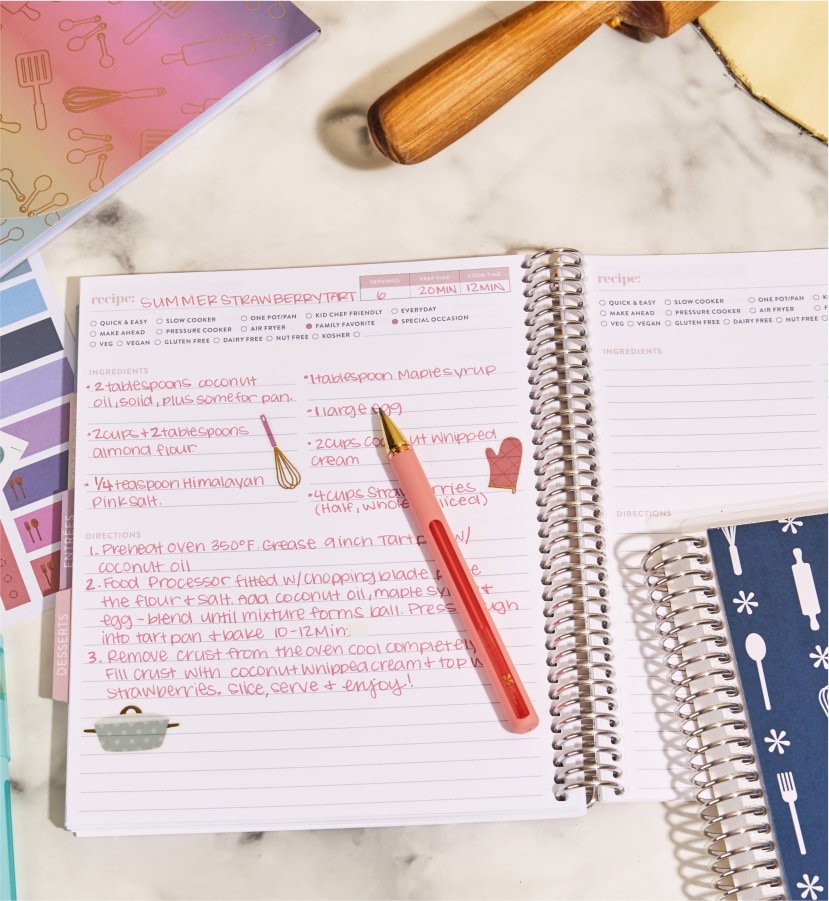 recipe: SUMMER STRAWBERRY TART
SERVINGS PREP TIME COOK TIME
6 20 MIN 12 MIN
QUICK & EASY SLOW COOKER ONE POT/PAN KID CHEF FRIENDLY EVERYDAY
MAKE AHEAD PRESSURE COOKER AIR FRYER FAMILY FAVORITE SPECIAL OCCASION
VEG VEGAN GLUTEN FREE DAIRY FREE NUT FREE KOSHER
INGREDIENTS
• 2 tablespoons coconut
oil, solid, plus some for pan.
• 2 cups + 2 tablespoons
almond flour.
• 1/4 teaspoon Himalayan
Pink salt.
• 1 tablespoon Maple syrup
• 1 large egg
• 2 cups whipped
cream
• 4 cups
(Half, whole
DIRECTIONS
1. Preheat oven 350°F. Grease 9 inch Tart w/
coconut oil
2. Food Processor fitted w/ chopping blade
the flour & salt. Add coconut oil, maple &
egg - blend until mixture forms ball. Press
into tart pan & bake 10-12 Min.
3. Remove crust from the oven cool completely,
Fill crust with coconut whipped cream + top
strawberries. Slice, serve + enjoy!
ENTRÉES
DESSERTS
recipe:
QUICK & EASY SLOW COOKER ONE POT/PAN
MAKE AHEAD PRESSURE COOKER AIR FRYER
VEG VEGAN GLUTEN FREE DAIRY FREE NUT FREE
INGREDIENTS
DIRECTIONS